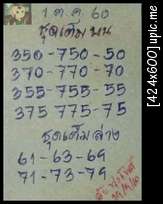 1 ต.ค 60
ชุดเต็ม บน
350-750-50
370-770-70
355-755-55
375 775-75
ชุดเต็ม ล่าง
61-63-69
71-73-79
[424x600] upic.me